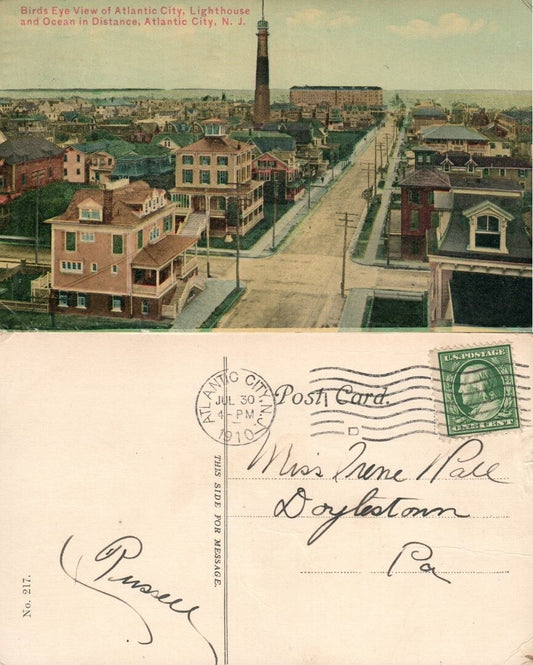 Birds Eye View of Atlantic City, Lighthouse
and Ocean in Distance, Atlantic City, N. J.
ATLANTIC CITY, N.J.
JUL 30
4-PM
1910
Post Card.
D
U.S. POSTAGE
ONE CENT
THIS SIDE FOR MESSAGE.
No. 217.
Russell
Miss Irene Pall
Doylestown
Pa